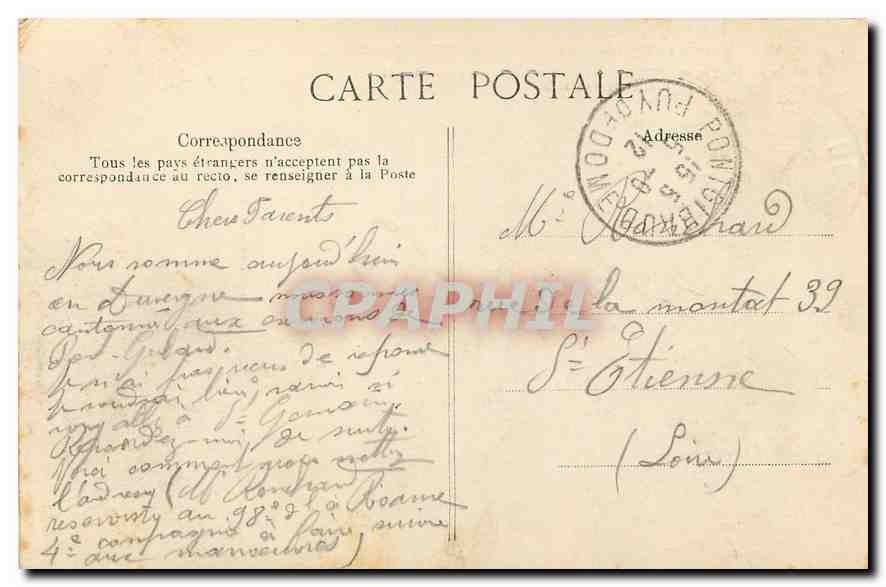 CARTE POSTALE
Correspondance
Tous les pays étrangers n'acceptent pas la
correspondance au recto, se renseigner à la Poste
Adresse
PONTGIBAUD
PUY-DE-DOME
Chers Parents
Nous somme aujourd'hui
en Auvergne nous sommes
cantonné aux environs de
Pon-Gibaud.
Je n'ai pas reçus de reponse
Je voudrai bien savoir si
vous allé à St
Repondez-moi de suite
Voici comment vous mettez
l'adresse (Mr Ronchard
reserviste au 98e d'i à Roanne
4e compagnie à faire suivre
aux manoeuvres)
Mr Ronchard
rue de la montat 39
St Etienne
(Loire)
CPAPHIL